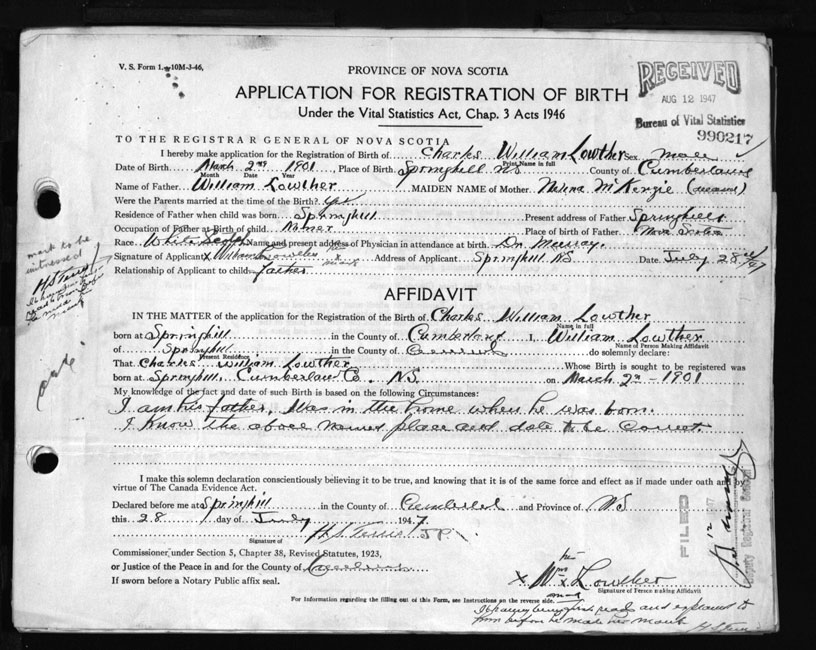 V. S. Form 1.—10M-3-46,
PROVINCE OF NOVA SCOTIA
APPLICATION FOR REGISTRATION OF BIRTH
Under the Vital Statistics Act, Chap. 3 Acts 1946
RECEIVED
AUG 12 1947
Bureau of Vital Statistics
990217
TO THE REGISTRAR GENERAL OF NOVA SCOTIA
I hereby make application for the Registration of Birth of Charles William Lowther Sex male
Print Name in full
Date of Birth March 2nd 1901, Place of Birth Springhill NS County of Cumberland
Month Date Year
Name of Father William Lowther MAIDEN NAME of Mother McKenzie (deceased)
Were the Parents married at the time of the Birth? Yes
Residence of Father when child was born Springhill Present address of Father Springhill
Occupation of Father at Birth of Child Miner Place of Birth of Father Nova Scotia
Race White Scotch Name and present address of Physician in attendance at birth Dr Murray
Signature of Applicant x William Lowther x his mark Address of Applicant Springhill NS Date July 28 1947
Relationship of Applicant to child father
mark to be
witnessed
AFFIDAVIT
IN THE MATTER of the application for the Registration of the Birth of Charles William Lowther
Name in full
born at Springhill in the County of Cumberland I, William Lowther
Name of Person Making Affidavit
of Springhill in the County of do solemnly declare:
Present Residence
That Charles William Lowther Whose Birth is sought to be registered was
born at Springhill, Cumberland Co. NS. on March 2nd - 1901
My knowledge of the fact and date of such Birth is based on the following Circumstances:
I am his father. Was in the home when he was born.
I know the above named place and date to be correct.
I make this solemn declaration conscientiously believing it to be true, and knowing that it is of the same force and effect as if made under oath and by
virtue of The Canada Evidence Act.
Declared before me at Springhill in the County of Cumberland and Province of N.S.
this 28 day of July 1947
J.P.
Signature of
Commissioner under Section 5, Chapter 38, Revised Statutes, 1923,
or Justice of the Peace in and for the County of
If sworn before a Notary Public affix seal.
x Wm x Lowther
his
mark
Signature of Person making Affidavit
For Information regarding the filling out of this Form, see Instructions on the reverse side.
It having been first read and explained to
him before he made his mark
FILED